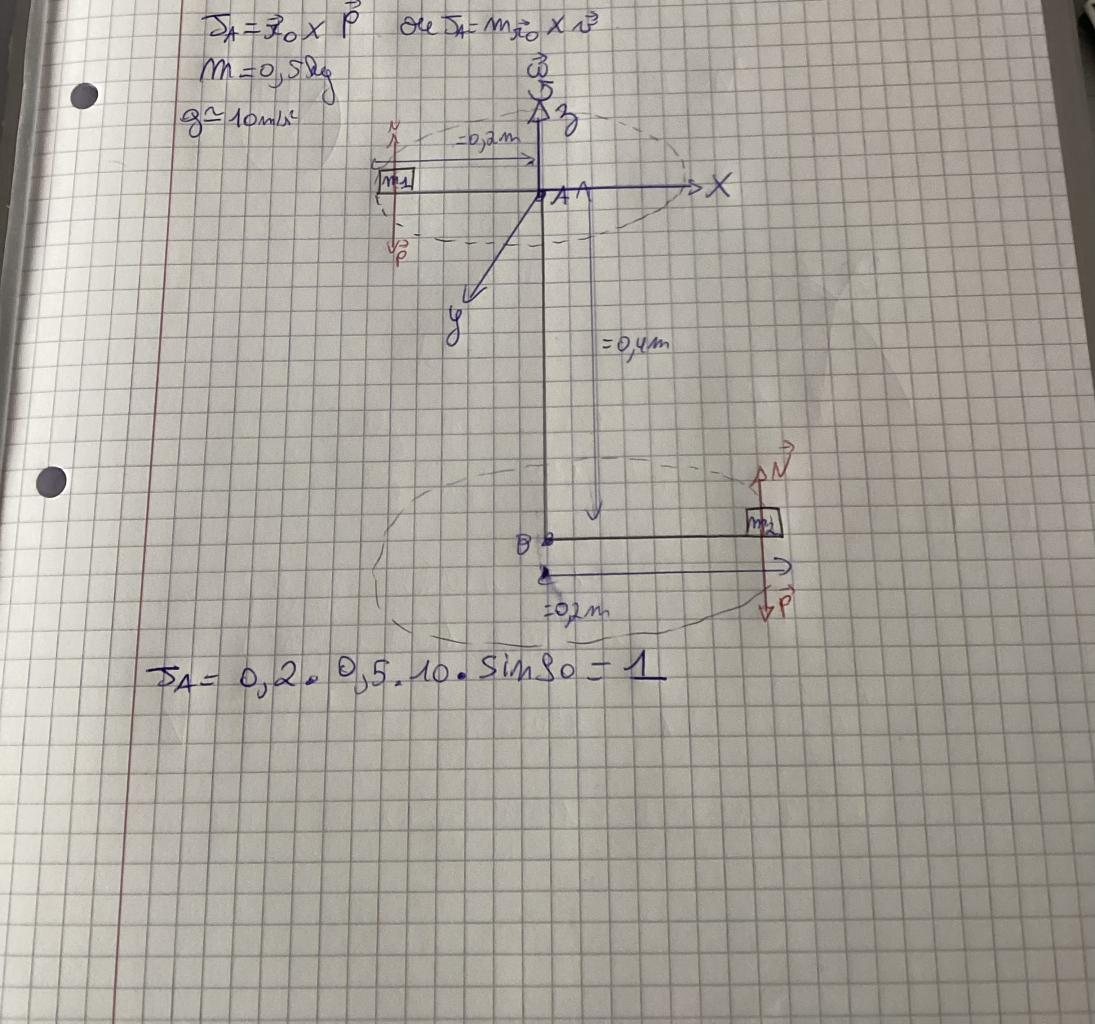 J_A = r⃗_0 × P⃗ ou J_A = m r⃗_0 × v⃗
m = 0,5 kg
g ≃ 10 m/s²
ω⃗
z
N
= 0,2m
m1
A
X
P⃗
y
= 0,4m
N⃗
m2
B
= 0,2m
P⃗
J_A = 0,2 . 0,5 . 10 . sin90 = 1